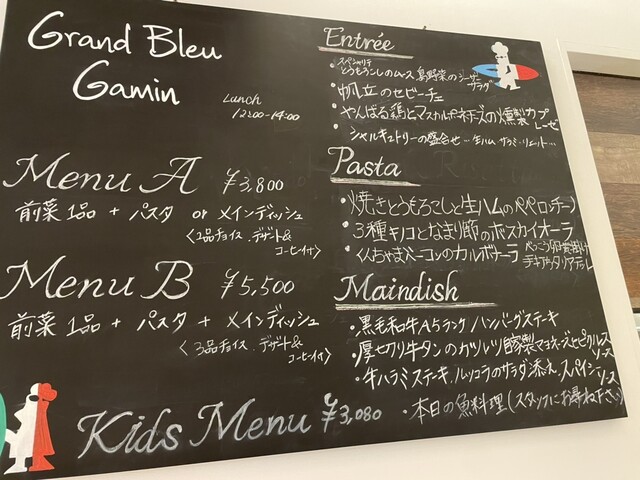 Grand Bleu
Gamin
Lunch
12:00-14:00
Menu A ¥3,800
前菜1品 + パスタ or メインディッシュ
〈2品チョイス、デザート&
コーヒー付〉
Menu B ¥5,500
前菜1品 + パスタ + メインディッシュ
〈3品チョイス、デザート&
コーヒー付〉
Kids Menu ¥3,080
Entrée
スペシャリテ
・とうもろこしのムース 島野菜のシーザー
サラダ
・帆立のセビーチェ
・やんばる鶏とマスカルポーネチーズの燻製カプ
レーゼ
・シャルキュトリーの盛合せ…生ハム サラミ リエット…
Pasta
・焼きとうもろこしと生ハムのペペロンチーノ
・3種キノコとなまり節のボスカイオーラ
・くんちゃまベーコンのカルボナーラ
Maindish
・黒毛和牛A5ランク ハンバーグステキ
・厚切り牛タンのカツレツ 自家製マヨネーズとピクルス
ソース
・牛ハラミステーキ、ルッコラのサラダ添え、スパイン
ソース
・本日の魚料理(スタッフにお尋ね下さい)